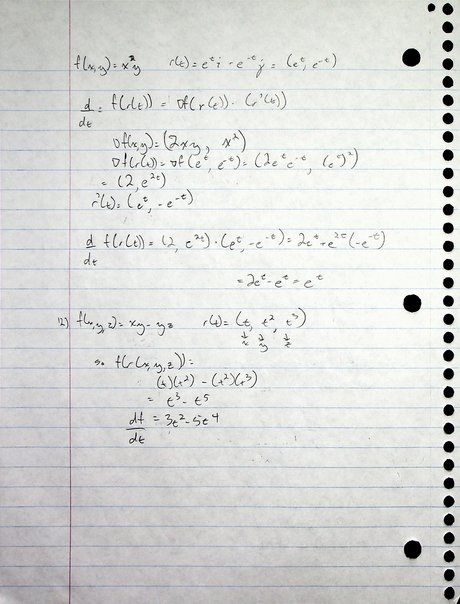 f(x,y) = x²y r(t) = eᵗi + e⁻ᵗj = (eᵗ, e⁻ᵗ)
d/dt = f(r(t)) = ∇f(r(t)) · (r'(t))
∇f(x,y) = (2xy, x²)
∇f(r(t)) = ∇f(eᵗ, e⁻ᵗ) = (2eᵗe⁻ᵗ, (eᵗ)²)
= (2, e²ᵗ)
r'(t) = (eᵗ, -e⁻ᵗ)
d/dt f(r(t)) = (2, e²ᵗ) · (eᵗ, -e⁻ᵗ) = 2eᵗ + e²ᵗ(-e⁻ᵗ)
= 2eᵗ - eᵗ = eᵗ
12) f(x,y,z) = xy - yz r(t) = (t, t², t³)
↓ ↓ ↓
x y z
so f(r(x,y,z)) =
(t)(t²) - (t²)(t³)
= t³ - t⁵
df/dt = 3t² - 5t⁴